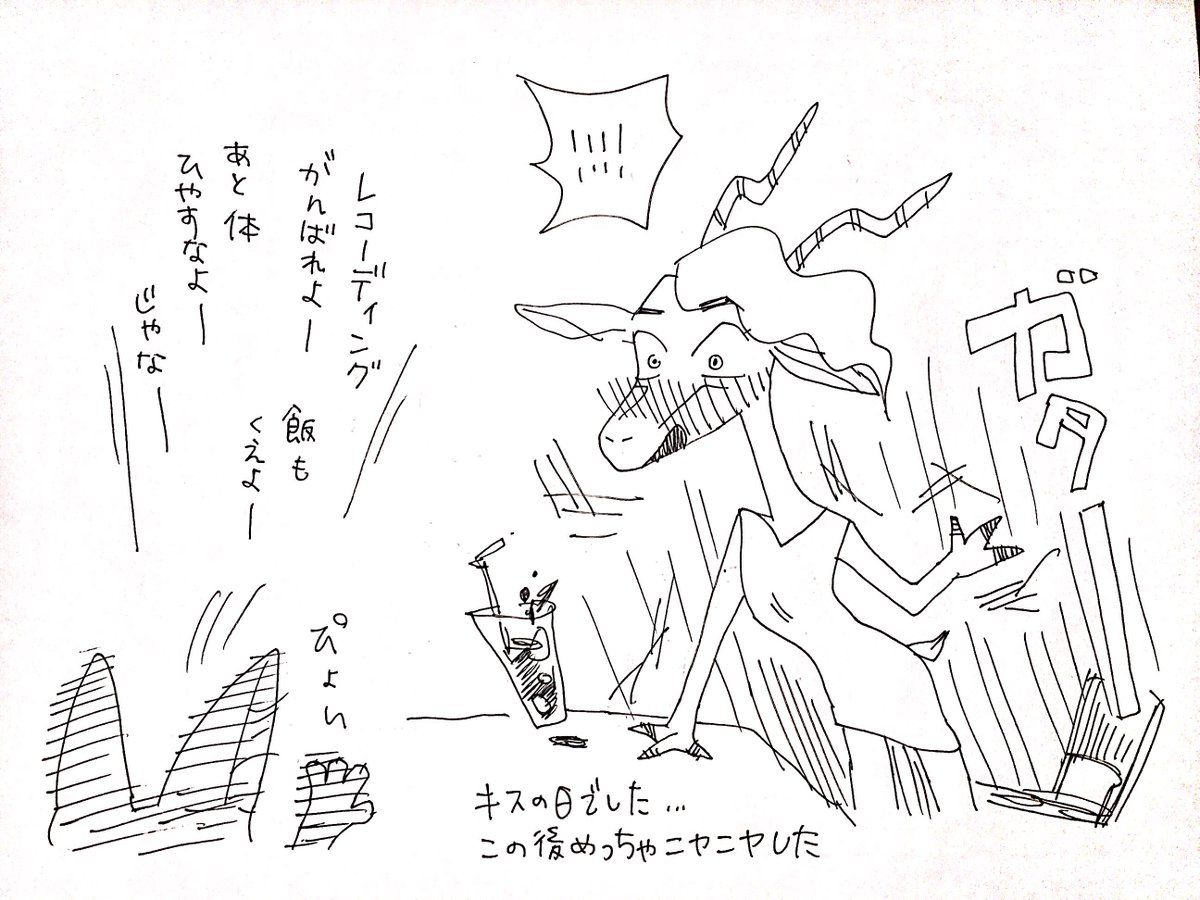 !!!!
ガタ
レコーディング
がんばれよー
あと体
ひやすなよー
じゃなー
飯も
くえよー
ぴょい
キスの日でした...
この後めっちゃニヤニヤした